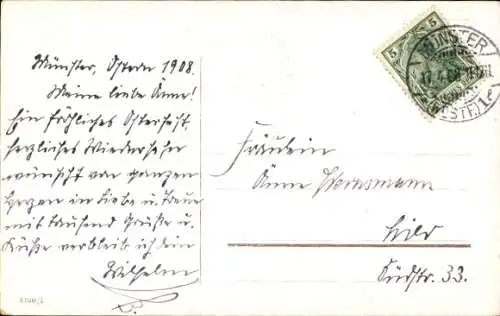 Münster, Ostern 1908.
Meine liebe Änne!
Ein fröhliches Osterfest,
herzliches Wiedersehn
wünscht von ganzen
Herzen in Liebe u. Treue
mit tausend Grüße u.
Küße verbleib ich dein
Wilhelm
5
5
MÜNSTER
(WESTF.) 1
Fräulein
Änne
Südstr. 33.